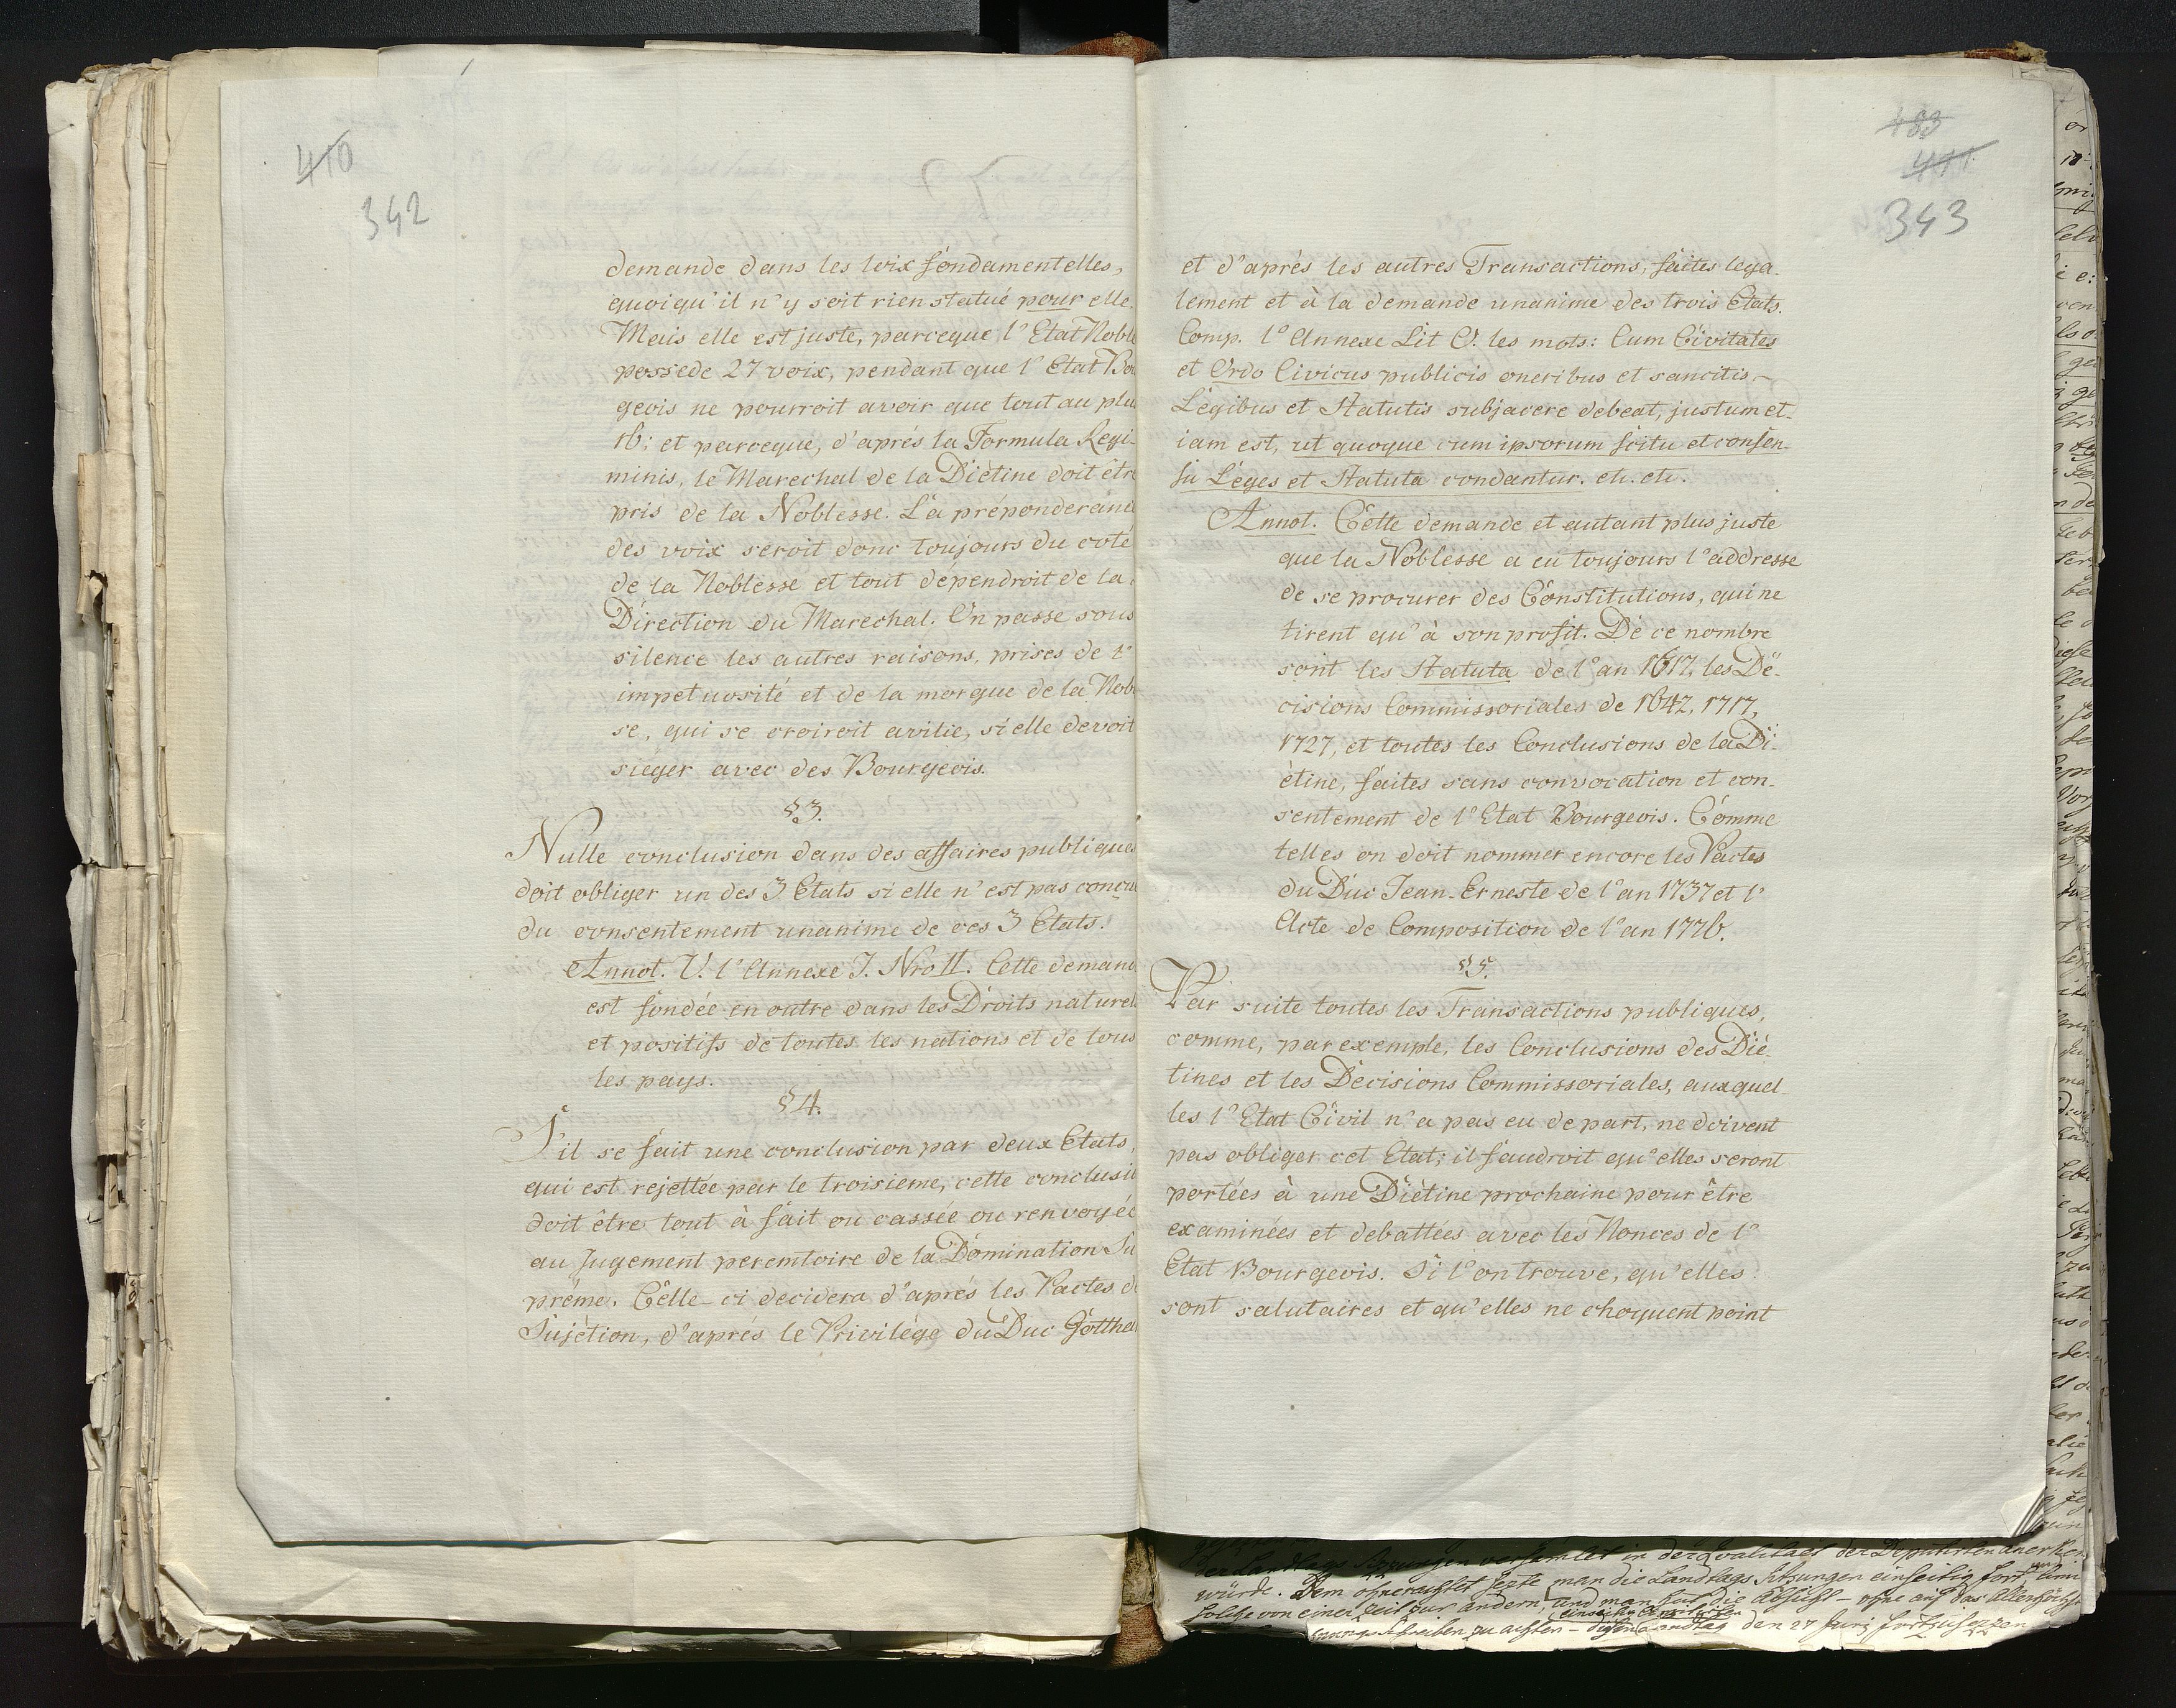 410
342
demande dans les loix fondamentelles,
quoiqu'il n'y soit rien statué pour elle.
Mais elle est juste, parceque l'Etat Noble
possede 27 voix, pendant que l'Etat Bou
geois ne pourroit avoir que tout au plu
16; et parceque, d'aprés la Formula Regi-
minis, le Marechal de la Diètine doit être
pris de la Noblesse. La préponderance
des voix seroit donc toujours du coté
de la Noblesse et tout dépendroit de la
Direction du Marechal. On passe sous
silence les autres raisons, prises de l'
impetuosité et de la morgue de la Nob
se, qui se croiroit avilie, si elle devoit
sieger avec des Bourgeois.
§ 3.
Nulle conclusion dans des affaires publiques
doit obliger un des 3 Etats si elle n'est pas conçu
du consentement unanime de ces 3 Etats.
Annot. V. l'Annexe J. Nro II. Cette deman
est fondée en outre dans les Droits naturel
et positifs de toutes les nations et de tous
les pays.
§ 4.
S'il se fait une conclusion par deux Etats,
qui est rejettée par le troisieme, cette conclusi
doit être tout à fait ou cassée ou renvoyée
au Jugement peremtoire de la Domination Su
prême. Celle-ci decidera d'aprés les Pactes d
Sujètion, d'aprés le Privilège du Duc Gotthe
483
411
343
et d'aprés les autres Transactions, faites lega-
lement et à la demande unanime des trois Etats.
Comp. l'Annexe Lit O. les mots: Cum Civitates
et Ordo Civicus publicis oneribus et sancitis
Legibus et Statutis subjacere debeat, justum et-
iam est, ut quoque cum ipsorum scitu et consen-
su Leges et Statuta condantur. etc. etc.
Annot. Cette demande et autant plus juste
que la Noblesse a eu toujours l'addresse
de se procurer des Constitutions, qui ne
tirent qu'à son profit. De ce nombre
sont les Statuta de l'an 1617, les De-
cisions Commissoriales de 1642, 1717,
1727, et toutes les Conclusions de la Di-
ètine, faites sans convocation et con-
sentement de l'Etat Bourgeois. Comme
telles on doit nommer encore les Pactes
du Duc Jean-Erneste de l'an 1737 et l'
Acte de Composition de l'an 1776.
§ 5.
Par suite toutes les Transactions publiques,
comme, par exemple, les Conclusions des Diè-
tines et les Decisions Commissoriales, auxquel-
les l'Etat Civil n'a pas eu de part, ne doivent
pas obliger cet Etat; il faudroit qu'elles seront
portées à une Diètine prochaine pour être
examinées et debattées avec les Nonces de l'
Etat Bourgeois. Si l'on trouve, qu'elles
sont salutaires et qu'elles ne choquent point
der Landtags versamlet in der Qualitaet der Deputirten
würde. Dem ohnerachtet sezte man die Landtags Sitzungen einseitig fort
solche von einer Zeit zur andern, und man hat die Absicht - ohne auf das
zu achten - diesen Landtag den 27 Juny fortzusezen